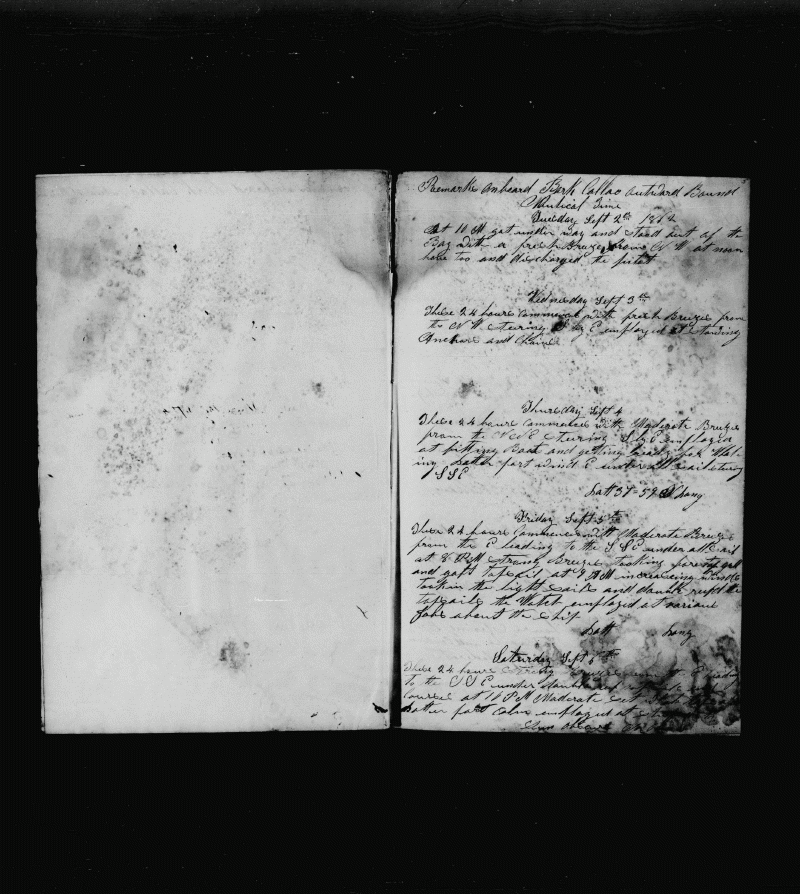 Remarks onboard Bark Callao outward Bound
Nautical Time
Tuesday Sept 2th 1862
At 10 AM got under way and stood out of the
Bay with a fresh Breeze from N W at noon
hove too and discharged the pilot
Wednesday Sept 3th
These 24 hours commences with fresh Breezes from
to N W steering S by E employed at stowing
Anchors and Chains
Thursday Sept 4
These 24 hours commences with Moderate Breezes
from the N N E steering S by E employed
at fitting Boats and getting ready for
ing Latter part wind E under all sail steering
S S E
Latt 37-59 N Long
Friday Sept 5th
These 24 hours Commences with Moderate Breezes
from the E heading to the S S E under all sail
at 8 PM Strong Breezes
and gaft topsail at 9 PM increasing winds
tookin the light sails and double reefd the
topsails the Watch employed at various
jobs about the ship
Latt Long
Saturday Sept 6th
These 24 hours
to the S S E under
courses at 11 PM Moderate
Latter part calm employed at